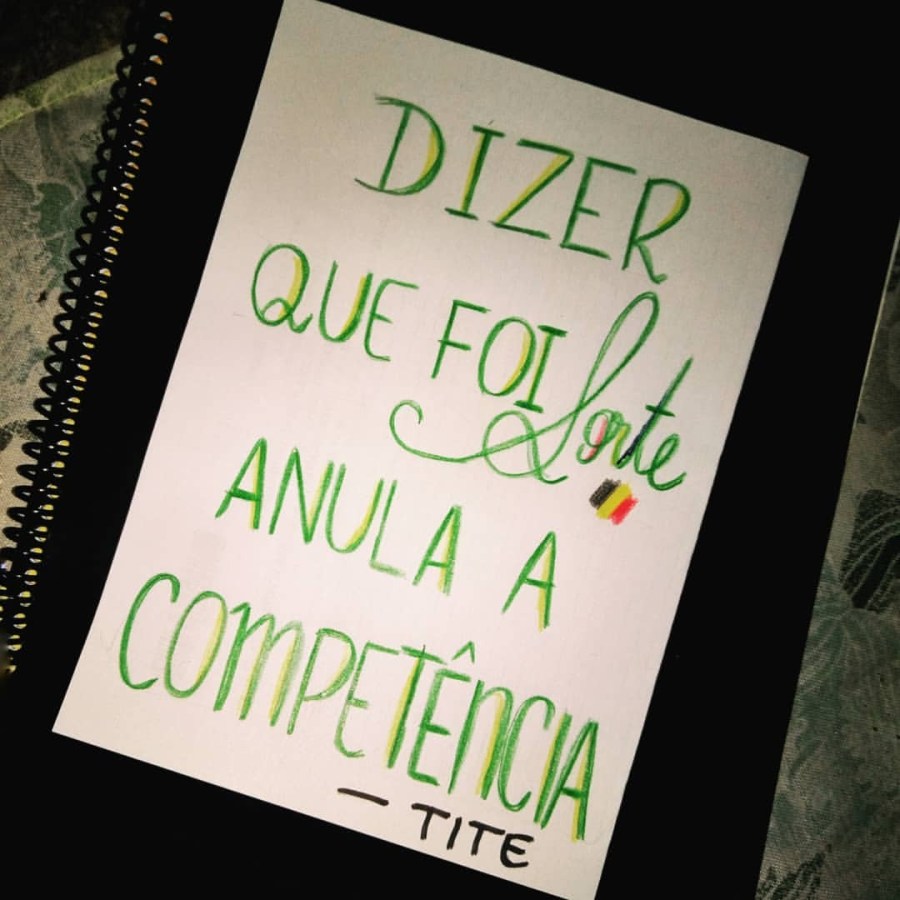 DIZER
QUE FOI Sorte
ANULA A
COMPETÊNCIA
— TITE